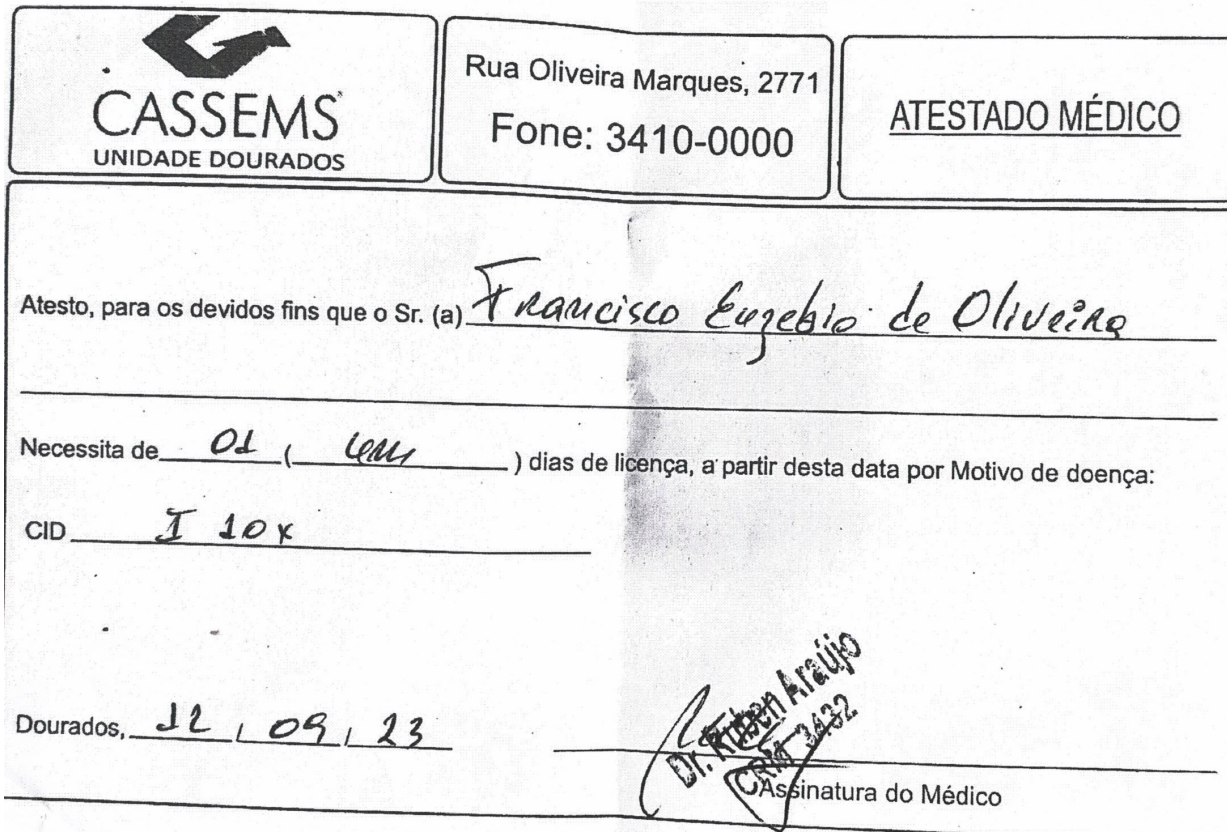 CASSEMS
UNIDADE DOURADOS
Rua Oliveira Marques, 2771
Fone: 3410-0000
ATESTADO MÉDICO
Atesto, para os devidos fins que o Sr. (a) Francisco Euzebio de Oliveira
Necessita de 01 ( um ) dias de licença, a partir desta data por Motivo de doença:
CID I 10x
Dourados, 12 / 09 / 23
Dr. Ruben Araújo
CRM 3432
Assinatura do Médico